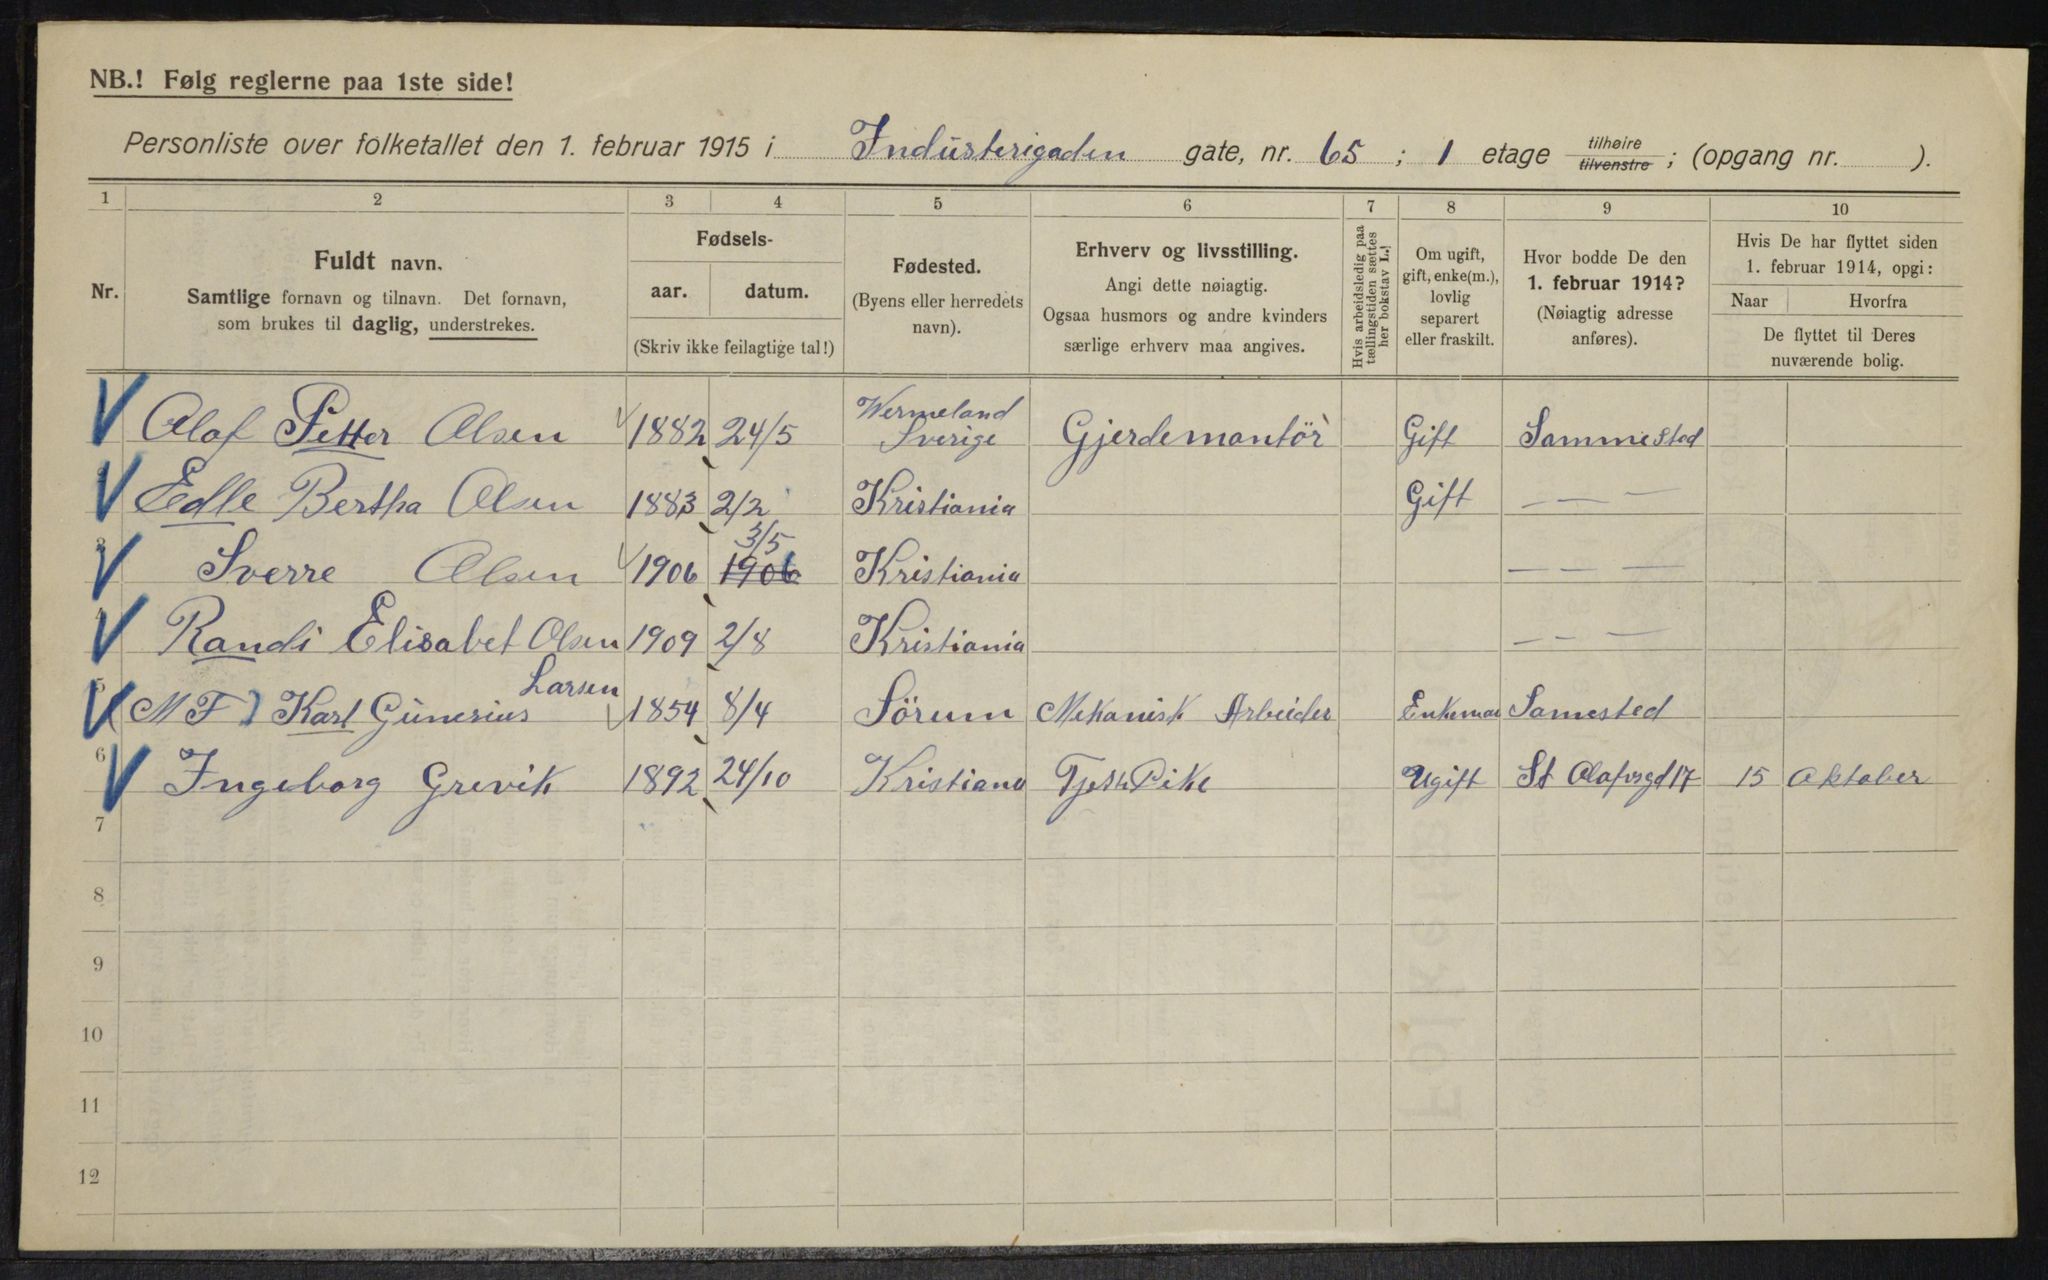 NB.! Følg reglerne paa 1ste side!
Personliste over folketallet den 1. februar 1915 i Industerigaden gate, nr. 65 ; 1 etage tilhøire tilvenstre ; (opgang nr. ).
1 2 3 4 5 6 7 8 9 10
Nr.
Fuldt navn.
Samtlige fornavn og tilnavn. Det fornavn,
som brukes til daglig, understrekes.
Fødsels-
aar. datum.
(Skriv ikke feilagtige tal!)
Fødested.
(Byens eller herredets
navn).
Erhverv og livsstilling.
Angi dette nøiagtig.
Ogsaa husmors og andre kvinders
særlige erhverv maa angives.
Hvis arbeidsledig paa
tællingstiden sættes
her bokstav L.!
Om ugift,
gift, enke(m.),
lovlig
separert
eller fraskilt.
Hvor bodde De den
1. februar 1914?
(Nøiagtig adresse
anføres).
Hvis De har flyttet siden
1. februar 1914, opgi:
Naar Hvorfra
De flyttet til Deres
nuværende bolig.
Olaf Petter Olsen 1882 24/5 Wermeland Sverige Gjerdemontör Gift Sammested
Edle Bertha Olsen 1883 2/2 Kristiania Gift — — —
3 Sverre Olsen 1906 1906 3/5 Kristiania — — —
4 Randi Elisabet Olsen 1909 2/8 Kristiania — — —
5 (M F) Karl Günerius Larsen 1854 8/4 Sörum Mekanisk Arbeider Enkeman Samested
6 Ingeborg Grevik 1892 24/10 Kristiana Pike Ugift St Olafsgd 17 15 Oktober
7
8
9
10
11
12